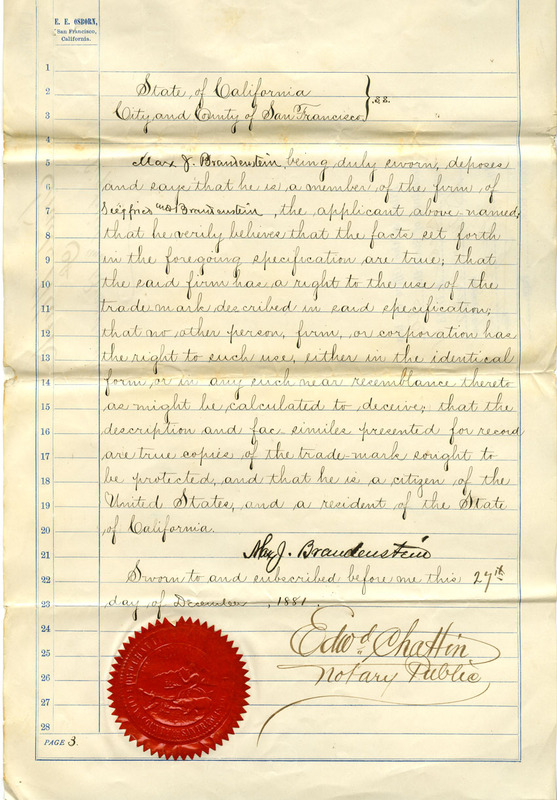 E. E. OSBORN,
San Francisco,
California.
1
2 State of California
3 City and County of San Francisco } ss.
4
5 Max J. Brandenstein, being duly sworn, deposes
6 and says that he is a member of the firm of
7 Siegfried and Brandenstein, the applicant above-named;
8 that he verily believes that the facts set forth
9 in the foregoing specification are true; that
10 the said firm has a right to the use of the
11 trade-mark described in said specification;
12 that no other person, firm, or corporation has
13 the right to such use, either in the identical
14 form, or in any such near resemblance thereto
15 as might be calculated to deceive; that the
16 description and fac-similes presented for record
17 are true copies of the trade-mark sought to
18 be protected, and that he is a citizen of the
19 United States, and a resident of the State
20 of California.
21 Max J. Brandenstein
22 Sworn to and subscribed before me this 27th
23 day of December, 1881.
24
25 Edwd Chattin
26 Notary Public
27
28
PAGE 3.